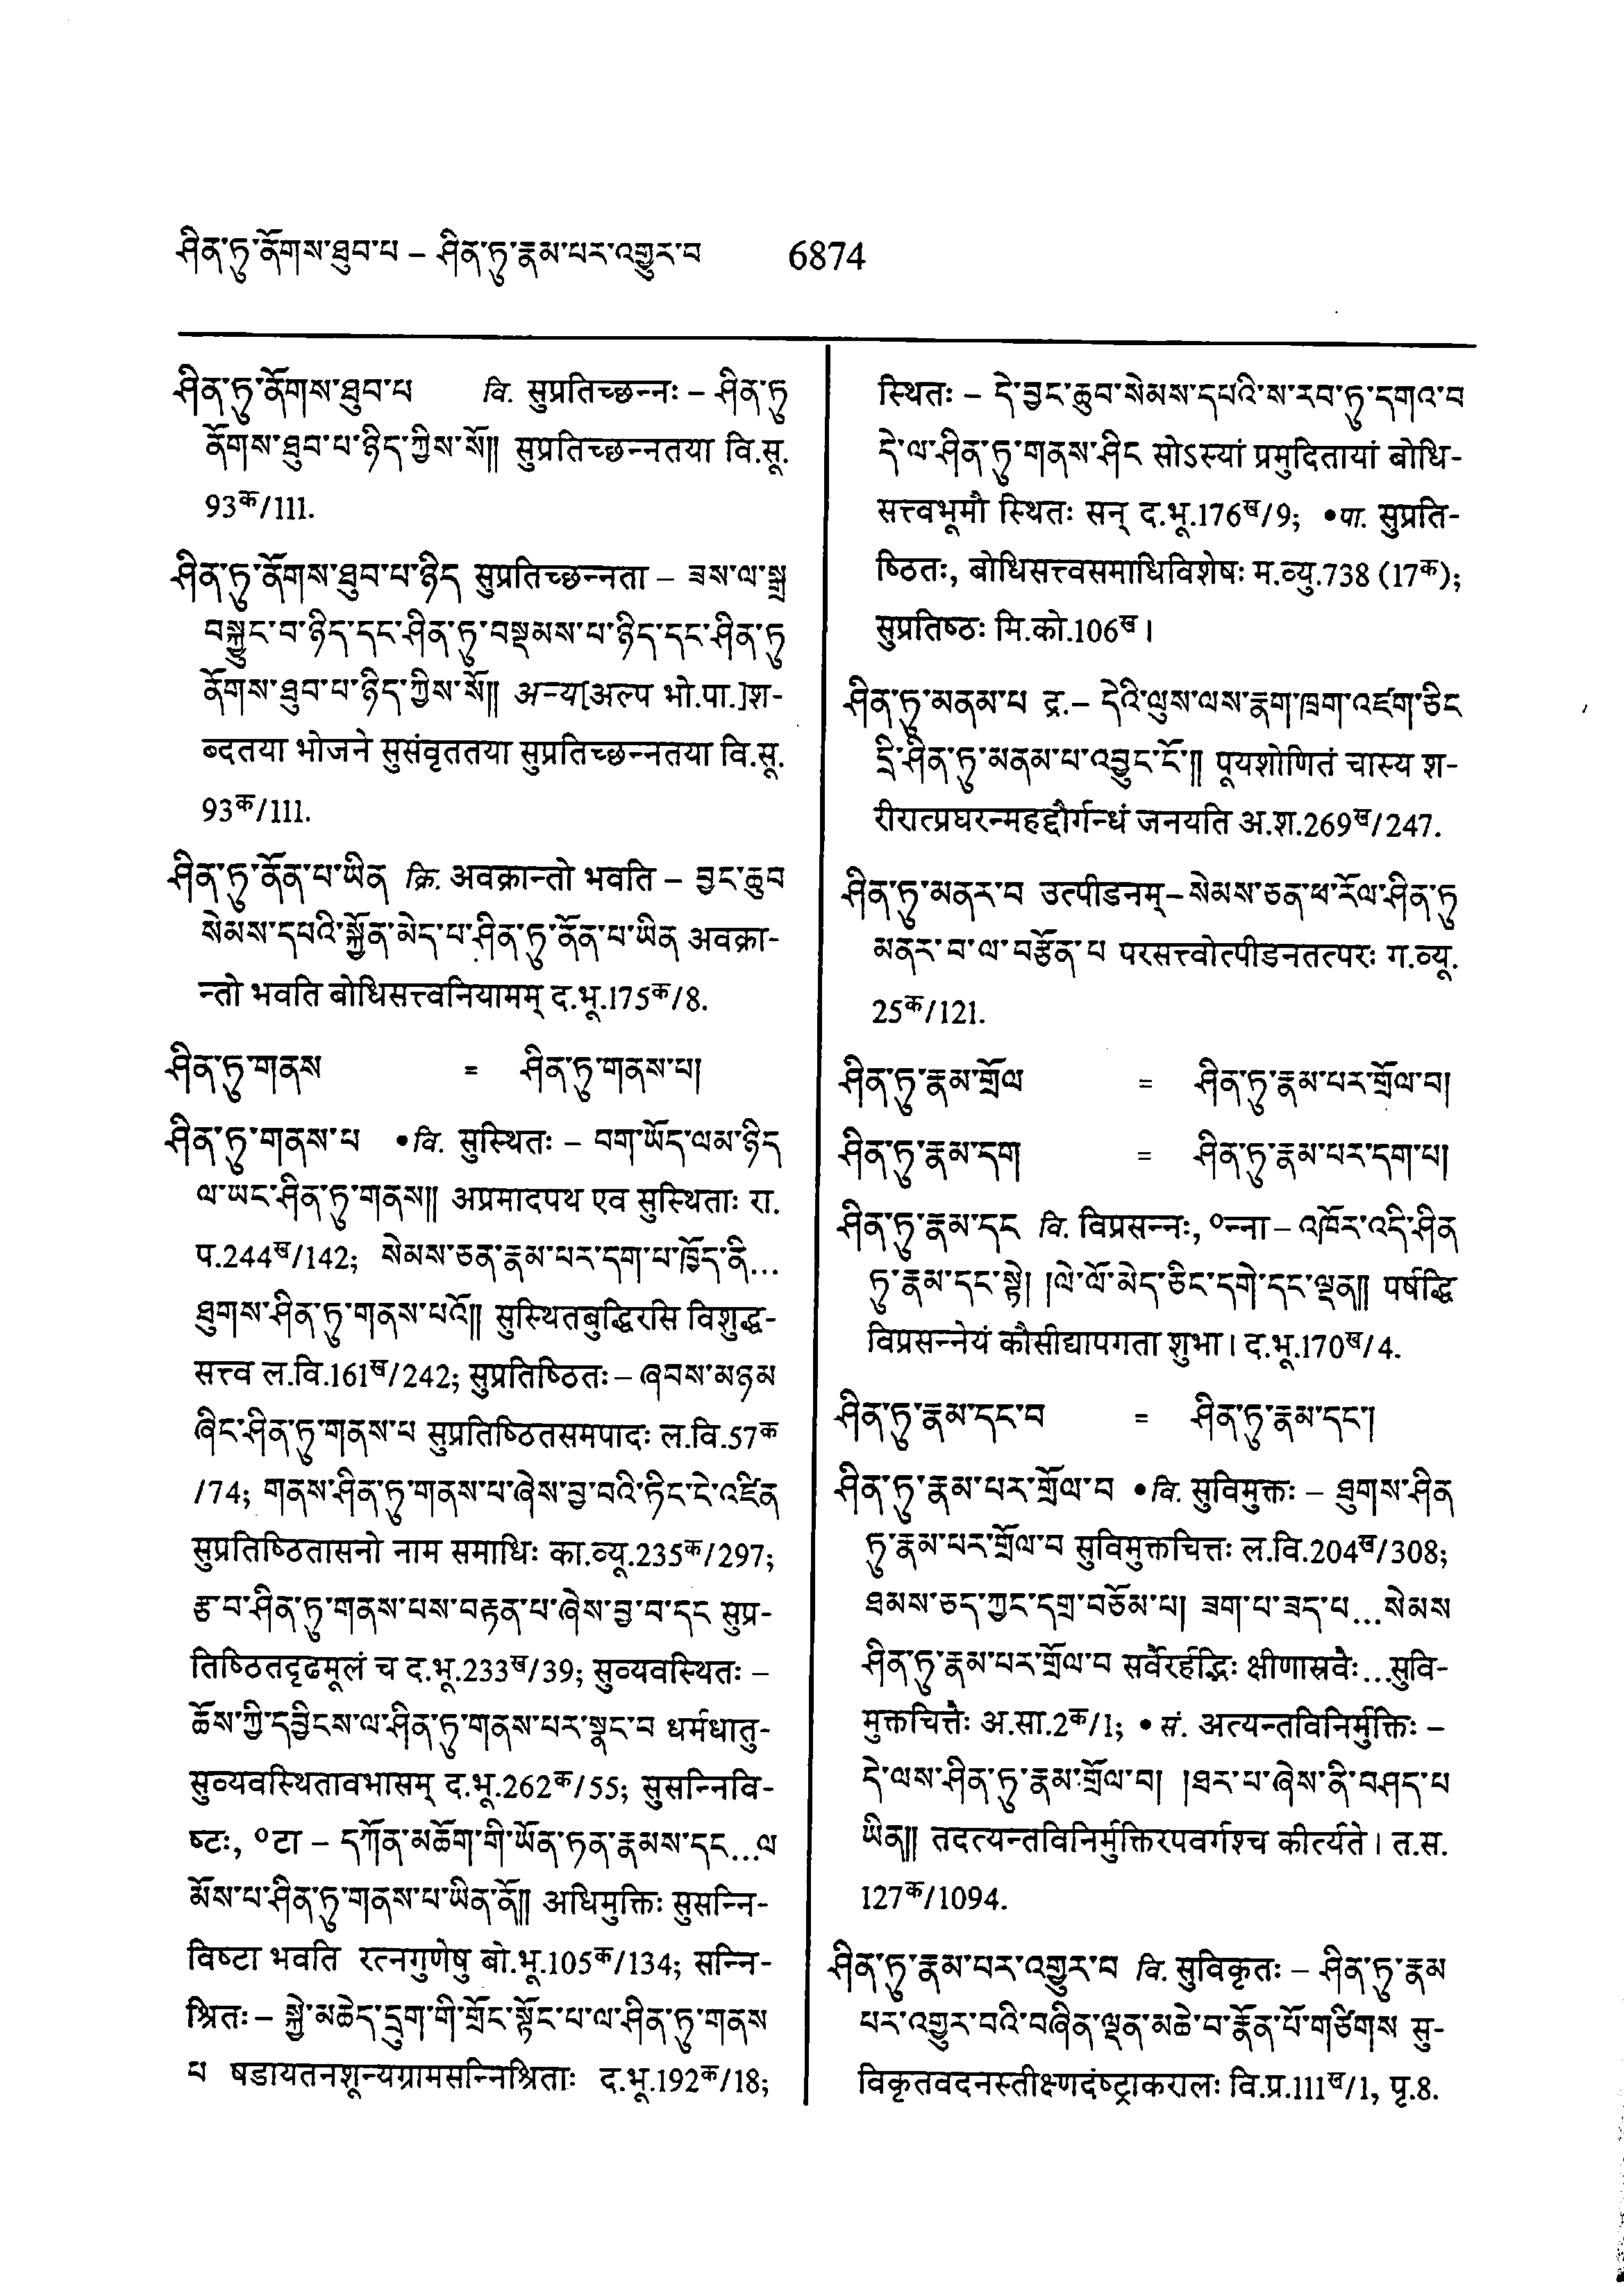 ཤིན་ཏུ་ནོགས་ཐུབ་པ – ཤིན་ཏུ་རྣམ་པར་འགྱུར་བ 6874
ཤིན་ཏུ་ནོགས་ཐུབ་པ वि. सुप्रतिच्छन्नः – ཤིན་ཏུ
ནོགས་ཐུབ་པ་ཉིད་ཀྱིས་སོ།། सुप्रतिच्छन्नतया वि.सू.
93क/111.
ཤིན་ཏུ་ནོགས་ཐུབ་པ་ཉིད सुप्रतिच्छन्नता – ཟས་ལ་སྒྲ
བསྐྱུང་བ་ཉིད་དང་ཤིན་ཏུ་བསྡམས་པ་ཉིད་དང་ཤིན་ཏུ
ནོགས་ཐུབ་པ་ཉིད་ཀྱིས་སོ།། अन्य[अल्प भो.पा.]श-
ब्दतया भोजने सुसंवृततया सुप्रतिच्छन्नतया वि.सू.
93क/111.
ཤིན་ཏུ་ནོན་པ་ཡིན क्रि. अवक्रान्तो भवति – བྱང་ཆུབ
སེམས་དཔའི་སྐྱོན་མེད་པ་ཤིན་ཏུ་ནོན་པ་ཡིན अवक्रा-
न्तो भवति बोधिसत्त्वनियामम् द.भू.175क/8.
ཤིན་ཏུ་གནས = ཤིན་ཏུ་གནས་པ།
ཤིན་ཏུ་གནས་པ •वि. सुस्थितः – བག་ཡོད་ལམ་ཉིད
ལ་ཡང་ཤིན་ཏུ་གནས།། अप्रमादपथ एव सुस्थिताः रा.
प.244ख/142; སེམས་ཅན་རྣམ་པར་དག་པ་ཁྱོད་ནི...
ཐུགས་ཤིན་ཏུ་གནས་པའོ།། सुस्थितबुद्धिरसि विशुद्ध-
सत्त्व ल.वि.161ख/242; सुप्रतिष्ठितः – ཞབས་མཉམ
ཞིང་ཤིན་ཏུ་གནས་པ सुप्रतिष्ठितसमपादः ल.वि.57क
/74; གནས་ཤིན་ཏུ་གནས་པ་ཞེས་བྱ་བའི་ཏིང་ངེ་འཛིན
सुप्रतिष्ठितासनो नाम समाधिः का.व्यू.235क/297;
རྩ་བ་ཤིན་ཏུ་གནས་པས་བརྟན་པ་ཞེས་བྱ་བ་དང सुप्र-
तिष्ठितदृढमूलं च द.भू.233ख/39; सुव्यवस्थितः –
ཆོས་ཀྱི་དབྱིངས་ལ་ཤིན་ཏུ་གནས་པར་སྣང་བ धर्मधातु-
सुव्यवस्थितावभासम् द.भू.262क/55; सुसन्निवि-
ष्टः, ०टा – དཀོན་མཆོག་གི་ཡོན་ཏན་རྣམས་དང...ལ
མོས་པ་ཤིན་ཏུ་གནས་པ་ཡིན་ནོ།། अधिमुक्तिः सुसन्नि-
विष्टा भवति रत्नगुणेषु बो.भू.105क/134; सन्नि-
श्रितः – སྐྱེ་མཆེད་དྲུག་གི་གྲོང་སྟོང་པ་ལ་ཤིན་ཏུ་གནས
པ षडायतनशून्यग्रामसन्निश्रिताः द.भू.192क/18;
स्थितः – དེ་བྱང་ཆུབ་སེམས་དཔའི་ས་རབ་ཏུ་དགའ་བ
དེ་ལ་ཤིན་ཏུ་གནས་ཤིང सोऽस्यां प्रमुदितायां बोधि-
सत्त्वभूमौ स्थितः सन् द.भू.176ख/9; •पा. सुप्रति-
ष्ठितः, बोधिसत्त्वसमाधिविशेषः म.व्यु.738 (17क);
सुप्रतिष्ठः मि.को.106ख।
ཤིན་ཏུ་མནམ་པ द्र.– དེའི་ལུས་ལས་རྣག་ཁྲག་འཛག་ཅིང
དྲི་ཤིན་ཏུ་མནམ་པ་འབྱུང་ངོ་།། पूयशोणितं चास्य श-
रीरात्प्रघरन्महद्दौर्गन्धं जनयति अ.श.269ख/247.
ཤིན་ཏུ་མནར་བ उत्पीडनम् – སེམས་ཅན་ཕ་རོལ་ཤིན་ཏུ
མནར་བ་ལ་བརྩོན་པ परसत्त्वोत्पीडनतत्परः ग.व्यू.
25क/121.
ཤིན་ཏུ་རྣམ་གྲོལ = ཤིན་ཏུ་རྣམ་པར་གྲོལ་བ།
ཤིན་ཏུ་རྣམ་དག = ཤིན་ཏུ་རྣམ་པར་དག་པ།
ཤིན་ཏུ་རྣམ་དང वि. विप्रसन्नः, ०न्ना – འཁོར་འདི་ཤིན
ཏུ་རྣམ་དང་སྟེ། །ལེ་ལོ་མེད་ཅིང་དགེ་དང་ལྡན།། पर्षद्धि
विप्रसन्नेयं कौसीद्यापगता शुभा। द.भू.170ख/4.
ཤིན་ཏུ་རྣམ་དང་བ = ཤིན་ཏུ་རྣམ་དང་།
ཤིན་ཏུ་རྣམ་པར་གྲོལ་བ •वि. सुविमुक्तः – ཐུགས་ཤིན
ཏུ་རྣམ་པར་གྲོལ་བ सुविमुक्तचित्तः ल.वि.204ख/308;
ཐམས་ཅད་ཀྱང་དགྲ་བཅོམ་པ། ཟག་པ་ཟད་པ...སེམས
ཤིན་ཏུ་རྣམ་པར་གྲོལ་བ सर्वैरर्हद्भिः क्षीणास्रवैः...सुवि-
मुक्तचित्तैः अ.सा.2क/1; • सं. अत्यन्तविनिर्मुक्तिः –
དེ་ལས་ཤིན་ཏུ་རྣམ་གྲོལ་བ། །ཐར་པ་ཞེས་ནི་བཤད་པ
ཡིན།། तदत्यन्तविनिर्मुक्तिरपवर्गश्च कीर्त्यते। त.स.
127क/1094.
ཤིན་ཏུ་རྣམ་པར་འགྱུར་བ वि. सुविकृतः – ཤིན་ཏུ་རྣམ
པར་འགྱུར་བའི་བཞིན་ལྡན་མཆེ་བ་རྣོན་པོ་གཙིགས सु-
विकृतवदनस्तीक्ष्णदंष्ट्राकरालः वि.प्र.111ख/1, पृ.8.